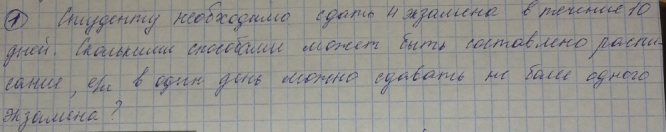 1 Студенту необходимо сдать 4 экзамена в течение 10
дней. Сколькими способами может быть составлено распи-
сание, если в один день можно сдавать не более одного
экзамена?